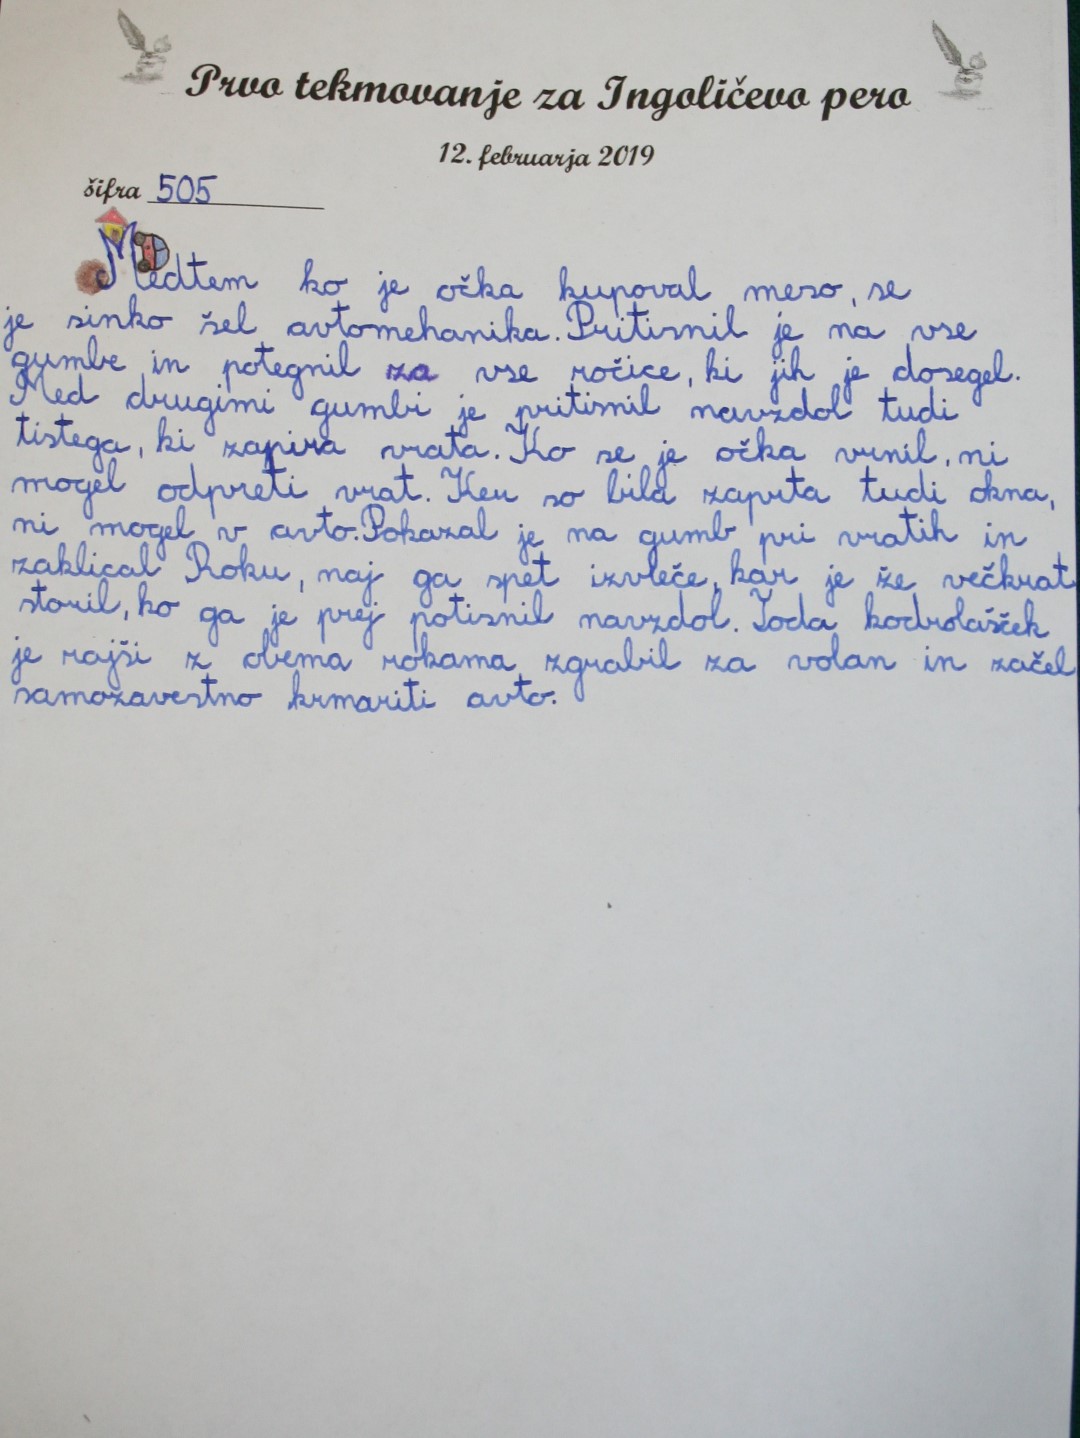 Prvo tekmovanje za Ingoličevo pero
12. februarja 2019
šifra 505
Medtem ko je očka kupoval meso, se
je sinko šel avtomehanika. Pritisnil je na vse
gumbe in potegnil za vse ročice, ki jih je dosegel.
Med drugimi gumbi je pritisnil navzdol tudi
tistega, ki zapira vrata. Ko se je očka vrnil, ni
mogel odpreti vrat. Ker so bila zaprta tudi okna,
ni mogel v avto. Pokazal je na gumb pri vratih in
zaklical Roku, naj ga spet izvleče, kar je že večkrat
storil, ko ga je prej potisnil navzdol. Toda kodrolašček
je rajši z obema rokama zgrabil za volan in začel
samozavestno krmariti avto.